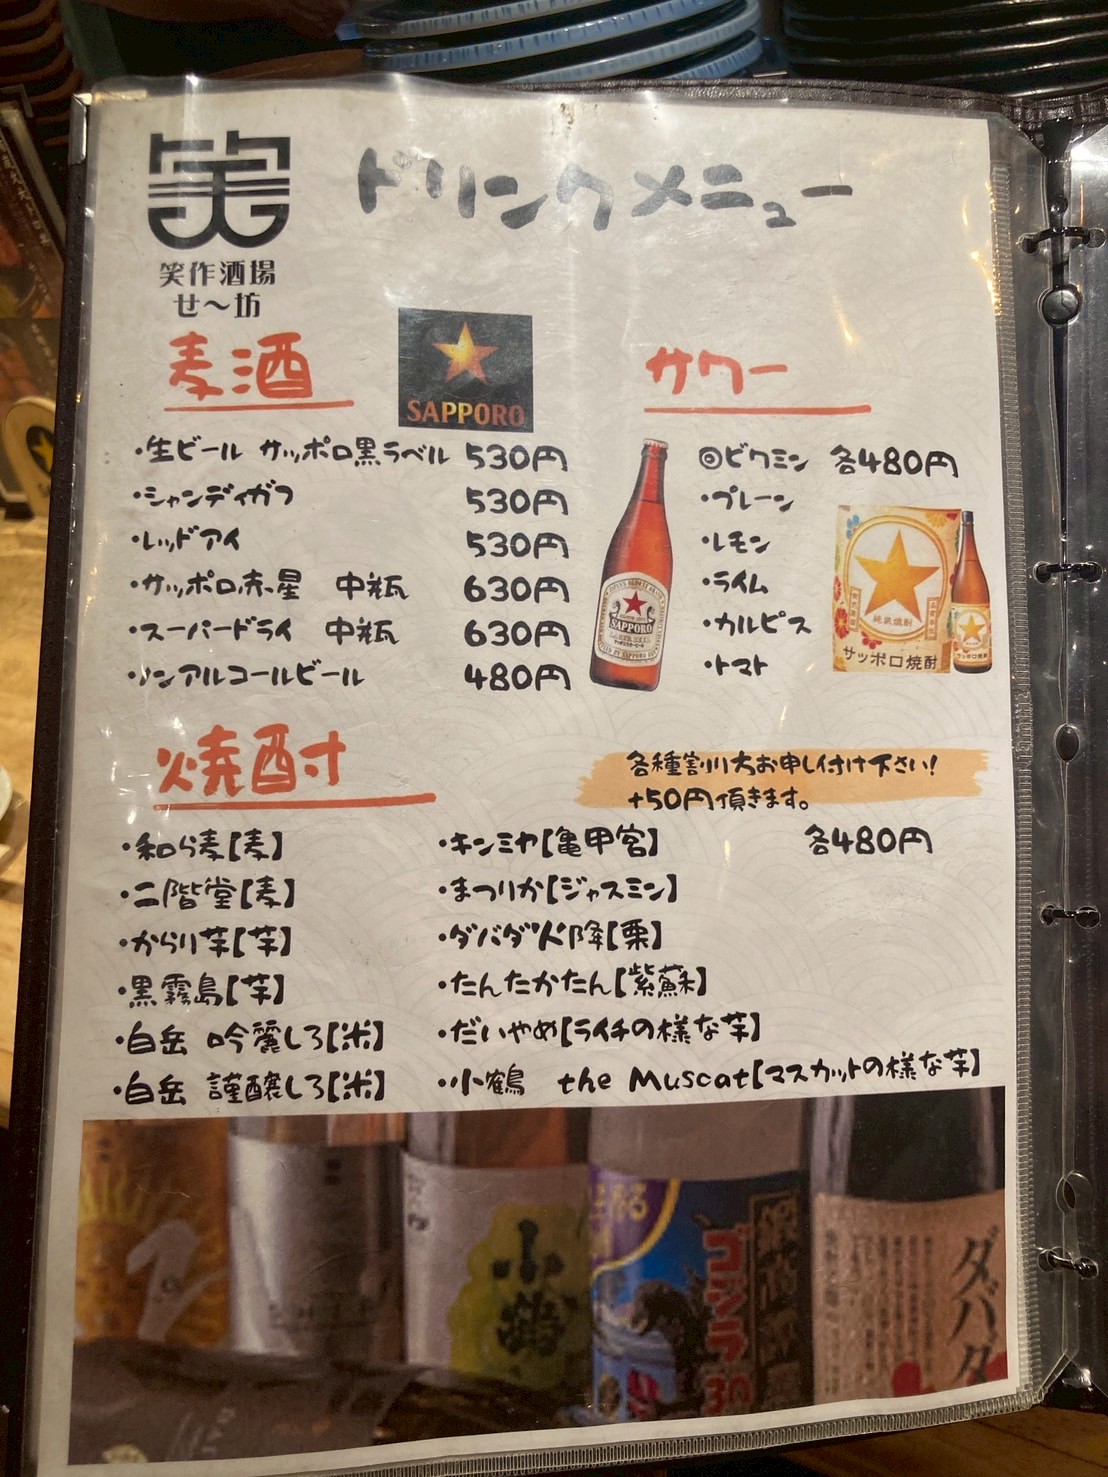 笑
ドリンクメニュー
笑作酒場
せ〜坊
麦酒
SAPPORO
・生ビール サッポロ黒ラベル 530円
・シャンディガフ 530円
・レッドアイ 530円
・サッポロ赤星 中瓶 630円
・スーパードライ 中瓶 630円
・ノンアルコールビール 480円
サワー
◎ビタミン 各480円
・プレーン
・レモン
・ライム
・カルピス
・トマト
SAPPORO
サッポロ焼酎
焼酎
各種割り方お申し付け下さい!
+50円頂きます。
・和ら麦【麦】
・二階堂【麦】
・からり芋【芋】
・黒霧島【芋】
・白岳 吟麗しろ【米】
・白岳 謹醸しろ【米】
・キンミヤ【亀甲宮】 各480円
・まつりか【ジャスミン】
・ダバダ火降【栗】
・たんたかたん【紫蘇】
・だいやめ【ライチの様な芋】
・小鶴 the Muscat【マスカットの様な芋】
小鶴
ゴジラ
30
ダバダ